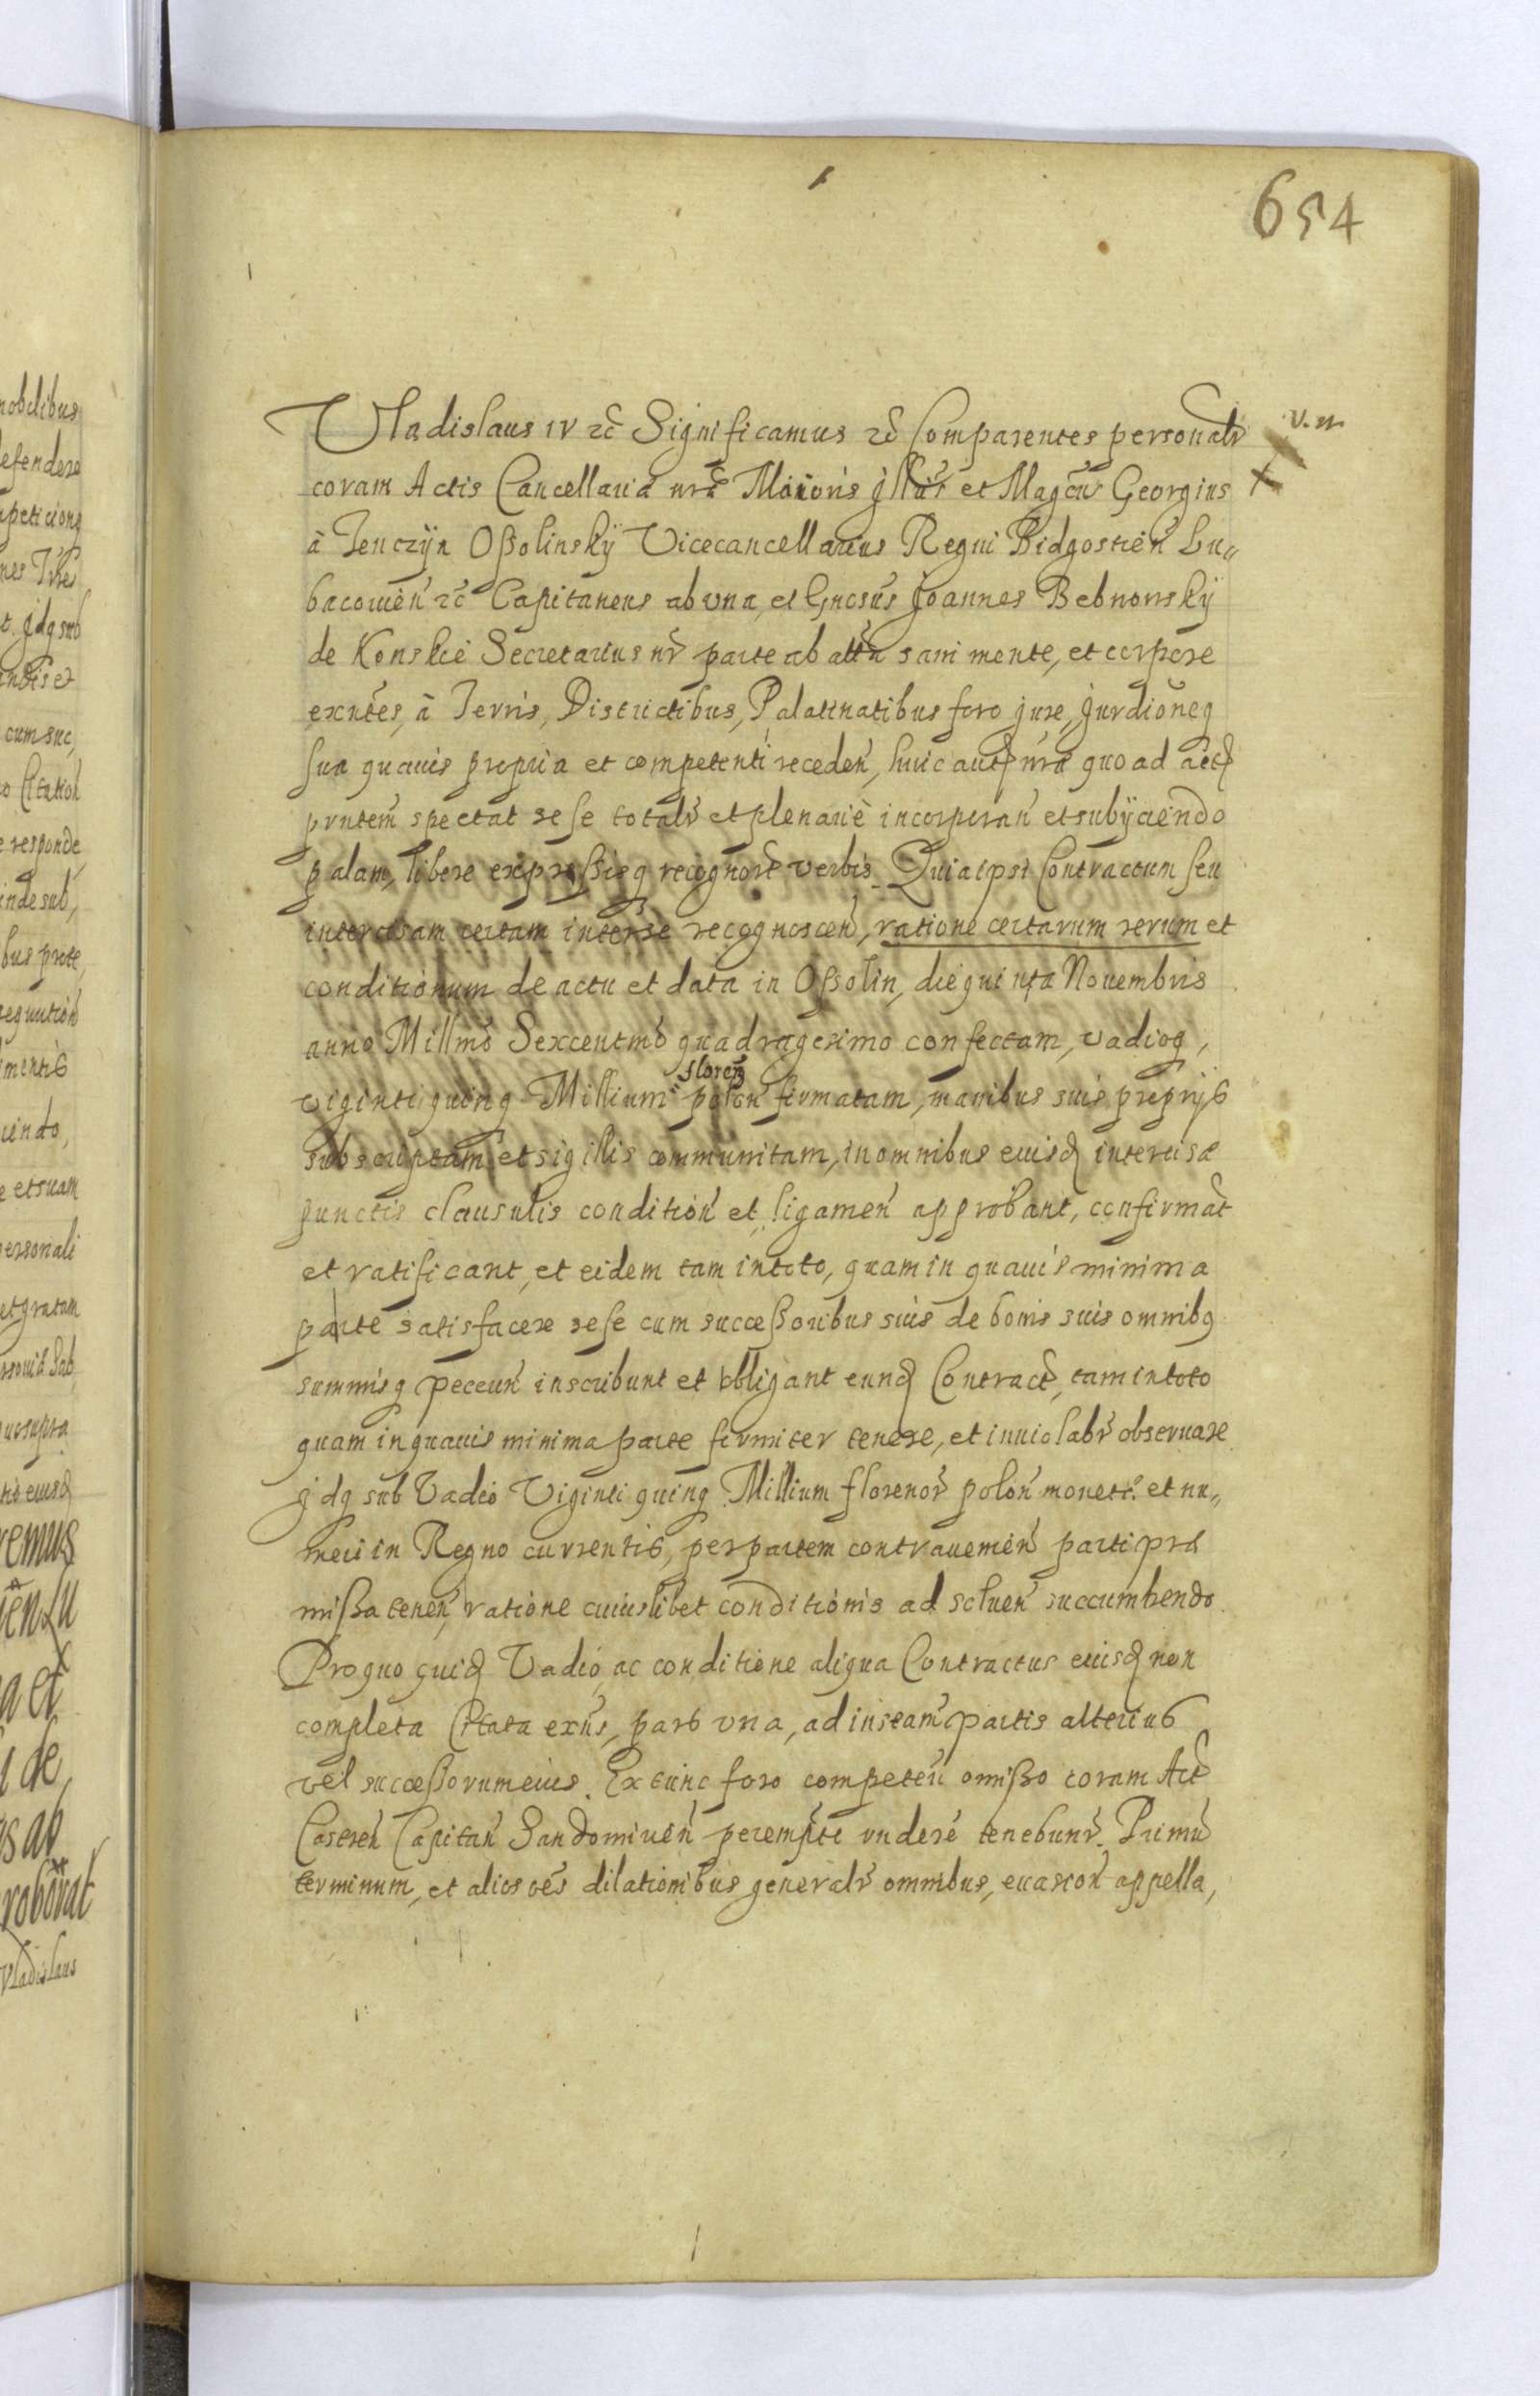 654
Vladislaus IV etc Significamus etc Comparentes personalr
v. n.
coram Actis Cancellaria nrã Maioris Illris et Magcus Georgius
à Tenczÿn Oßolinskÿ Vicecancellarius Regni Bidgostien Lu„
bacouien etc Capitaneus ab vna, et Gnosus Joannes Bebnowskÿ
de Konskie Secretarius nr parte ab altra sani mente, et corpore
exntes, à Terris, Districtibus, Palatinatibus foro jure, jurdioneq
sua quauis propria et competenti receden, huic autẽ nrã quo ad actũ
pnntem spectat se se totalr et plenariè incorporan et subÿciendo
palam, libere expreßisq recognort verbis. Quia ipsi Contractum seu
intercisam certam inter se recognoscen, ratione certarum rerum et
conditionum de actu et data in Oßolin, die quinta Nouembris
anno Millmo Sexcentmo quadragesimo confectam, vadioq,
floreñ
viginti quinq Millium polon firmatam, manibus suis proprÿs
subscriptam et sigillis communitam, in omnibus eiusd intercisæ
punctis clausulis condition et ligamen approbant, confirmat
et ratificant, et eidem tam in toto, quam in quauis minima
parte satisfacere se se cum succeßoribus suis de bonis suis omnibq
summisq pecun inscribunt et obligant eund Contract, tam in toto
quam in quauis minima parte firmiter tenere, et inuiolabr obseruare
jdq sub Vadio Viginti quinq Millium florenor polon monetæ et nu„
meri in Regno currentis, per partem contrauenien parti præ
mißa tenen, ratione cuiuslibet conditionis ad soluen succumbendo.
Pro quo quid Vadio, ac conditione aliqua Contractus eiusd non
completa Citata exns, pars vna, ad instam partis alterius
vel succeßorum eius. Ex tunc foro competen omißo coram Act
Castren Capitan Sandomirien perempte rndere tenebunr. Primũ
terminum, et alios oẽs dilationibus generalr omnibus, euasion appella,